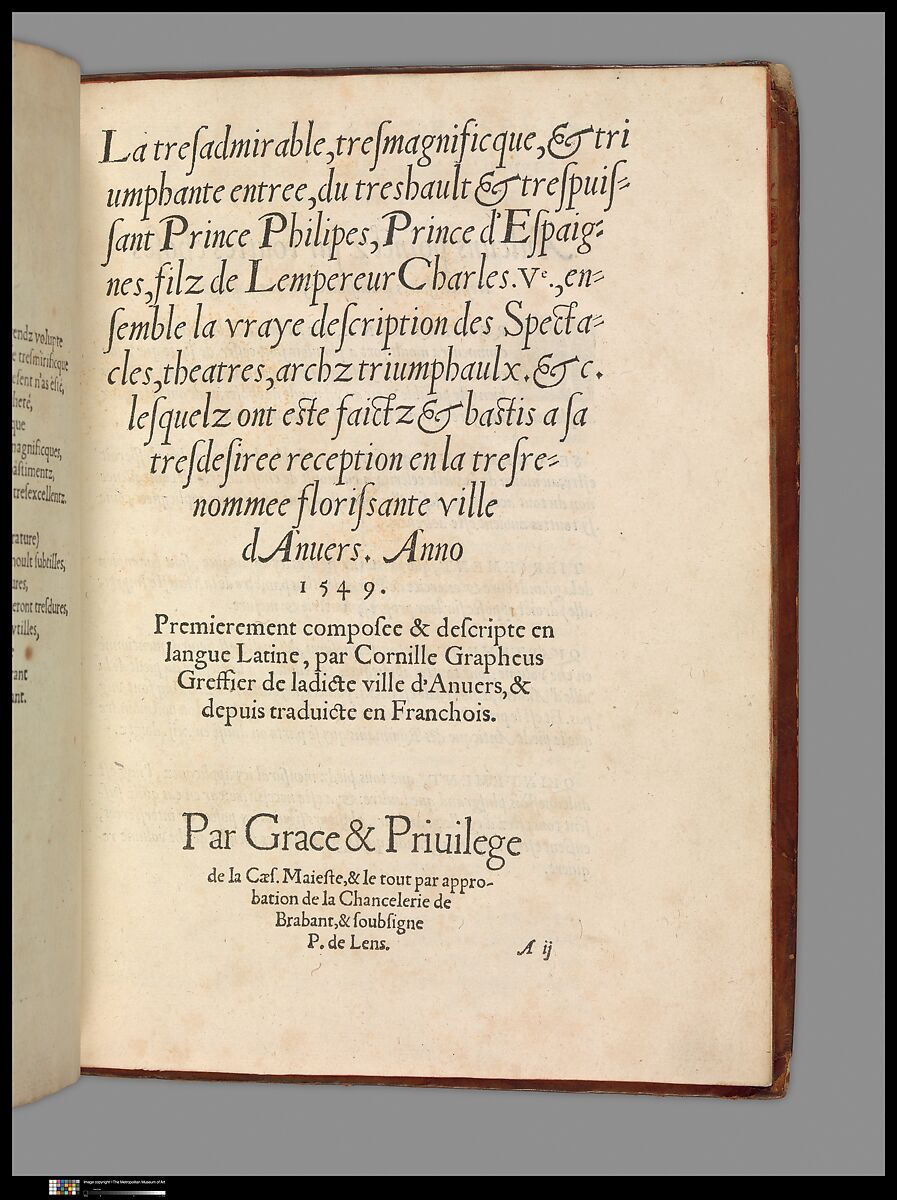 endz volunte
e tresmirificque
esent n'as esté,
heté,
que
magnificques,
astimentz,
tresexcellentz.
rature)
moult subtilles,
ures,
eront tresdures,
vtilles,
rant
ant.
La treſadmirable, treſmagnificque, & tri
umphante entree, du treshault & treſpuiſ-
ſant Prince Philipes, Prince d'Eſpaig-
nes, filz de Lempereur Charles. Ve., en-
ſemble la vraye deſcription des Specta-
cles, theatres, archz triumphaulx. & c.
leſquelz ont eſte faictz & baſtis a ſa
treſdeſiree reception en la treſre-
nommee floriſſante ville
d'Anuers. Anno
1549.
Premierement compoſee & deſcripte en
langue Latine, par Cornille Grapheus
Greffier de ladicte ville d'Anuers, &
depuis traduicte en Franchois.
Par Grace & Priuilege
de la Cæſ. Maieſte, & le tout par appro-
bation de la Chancelerie de
Brabant, & ſoubſigne
P. de Lens.
A ij
Image copyright ©The Metropolitan Museum of Art